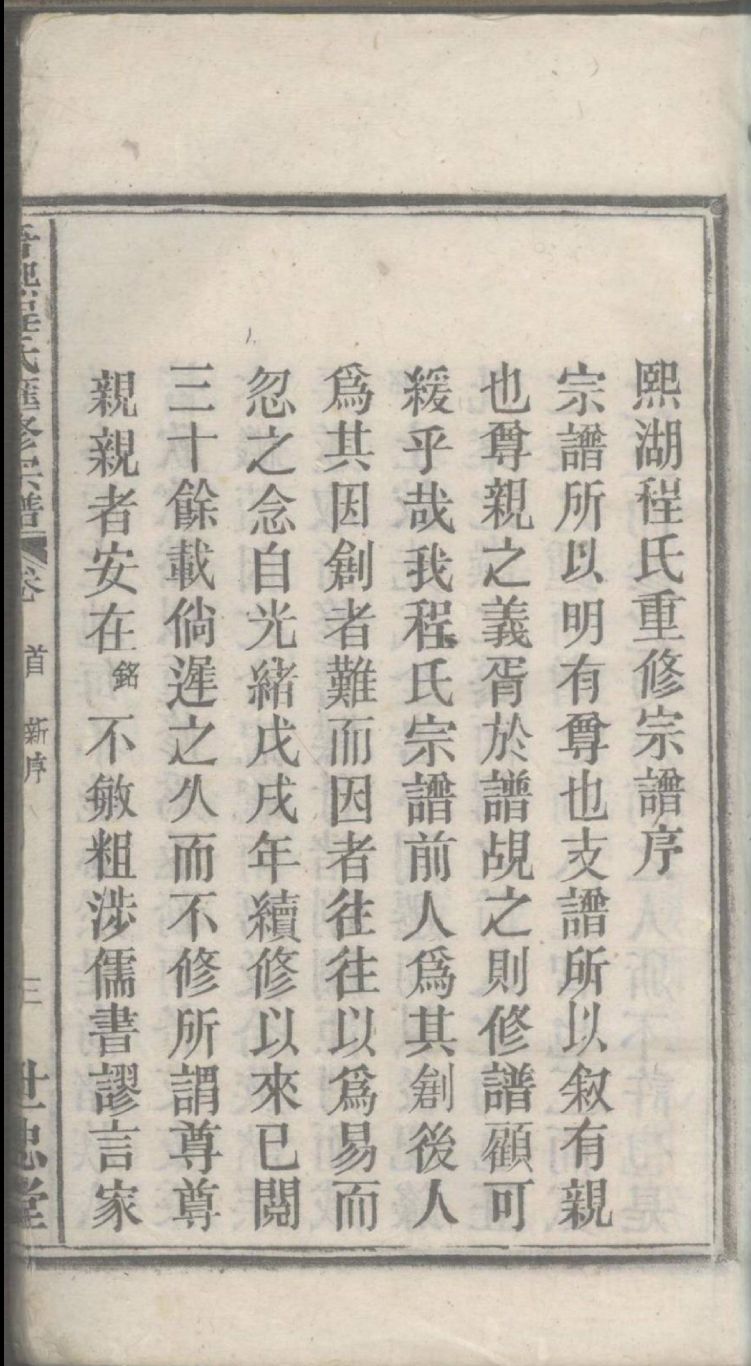 熙湖程氏重修宗譜序
宗譜所以明有尊也支譜所以叙有親
也尊親之義胥於譜覘之則修譜顧可
緩乎哉我程氏宗譜前人爲其創後人
爲其因創者難而因者往往以爲易而
忽之念自光緒戊戌年續修以來已閱
三十餘載倘遲之久而不修所謂尊尊
親親者安在銘不敏粗涉儒書謬言家
熙程氏匯修宗譜 卷首 新序 三 世忠堂